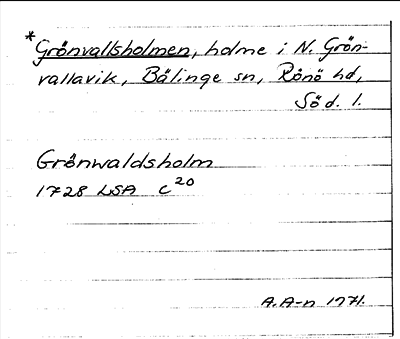 *Grönvallsholmen, holme i N. Grön-
vallavik, Bälinge sn, Rönö hd,
Söd. l.
Grönwaldsholm
1728 LSA C20
A.A-n 1971.